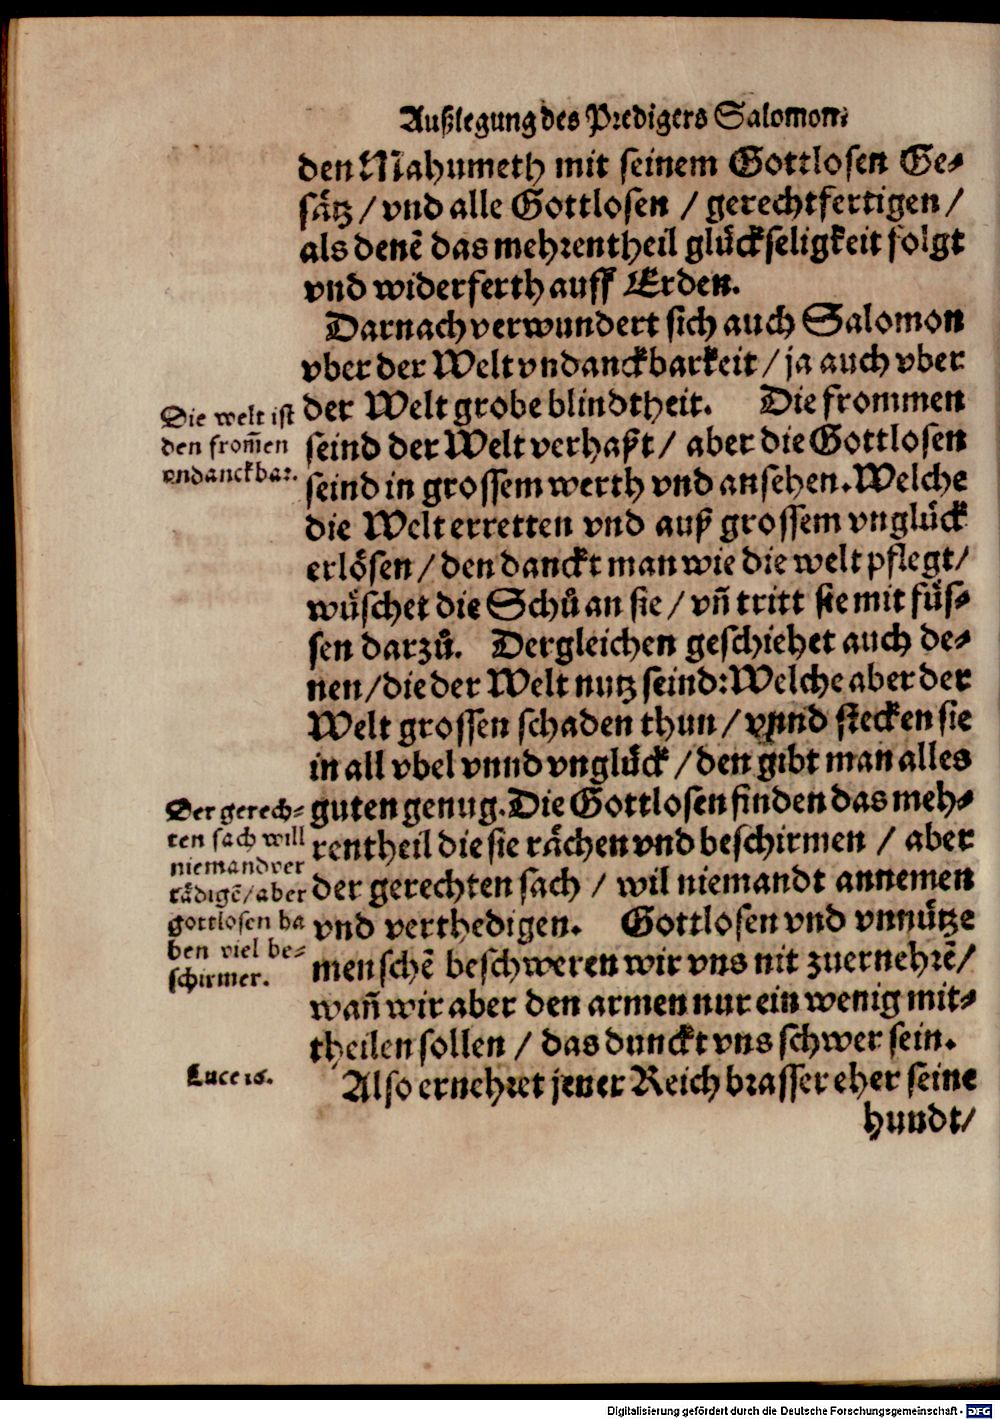 Außlegung des Predigers Salomon:
den Mahumeth mit seinem Gottlosen Ge-
sätz / vnd alle Gottlosen / gerechtfertigen /
als denē das mehrentheil glückseligkeit folgt
vnd widerferth auff Erden.
Darnach verwundert sich auch Salomon
vber der Welt vndanckbarkeit / ja auch vber
der Welt grobe blindtheit. Die frommen
seind der Welt verhaßt / aber die Gottlosen
seind in grossem werth vnd ansehen. Welche
die Welt erretten vnd auß grossem vnglück
erlösen / den danckt man wie die welt pflegt /
wüschet die Schů an sie / vñ tritt sie mit füs-
sen darzů. Dergleichen geschiehet auch de-
nen / die der Welt nutz seind: Welche aber der
Welt grossen schaden thun / vnnd stecken sie
in all vbel vnnd vnglück / den gibt man alles
guten genug. Die Gottlosen finden das meh-
rentheil die sie rächen vnd beschirmen / aber
der gerechten sach / wil niemandt annemen
vnd verthedigen. Gottlosen vnd vnnütze
menschē beschweren wir vns nit zuernehrē /
wañ wir aber den armen nur ein wenig mit-
theilen sollen / das dunckt vns schwer sein.
Also ernehret jener Reich brasser eher seine
hundt /
Die welt ist
den from̄en
vndanckbar.
Der gerech-
ten sach will
niemand ver
tädigē / aber
gottlosen ha
ben viel be-
schirmer.
Luce 16.
Digitalisierung gefördert durch die Deutsche Forschungsgemeinschaft - DFG